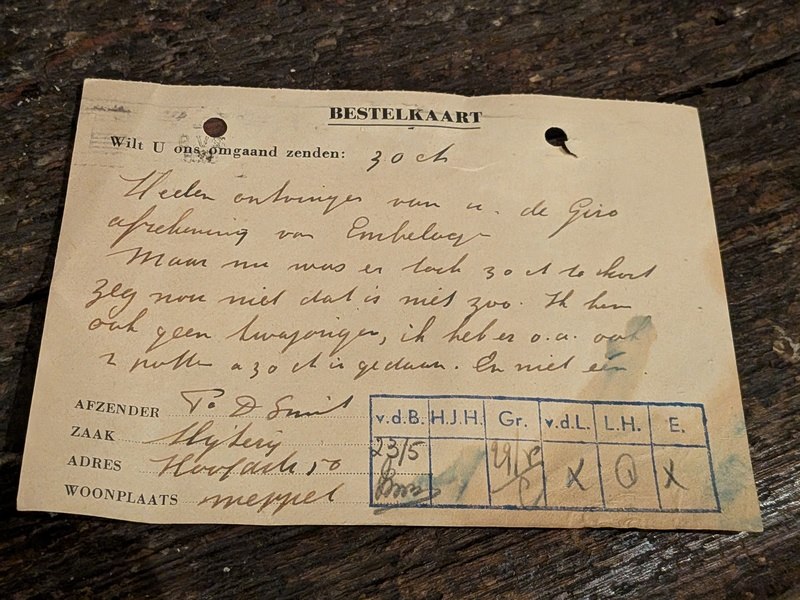 BESTELKAART
Wilt U ons omgaand zenden: 30 ct
Heden ontvingen van u. de Giro
afrekening van Embelage
Maar nu was er toch 30 ct te kort
zeg nou niet dat is niet zoo. Ik ben
ook geen twajariger, ik heb er o.a. ook
2 potten a 30 ct in gedaan. En niet een.
AFZENDER D Smit
ZAAK Slijterij
ADRES Hoofdstr 50
WOONPLAATS Meppel
v.d.B. H.J.H. Gr. v.d.L. L.H. E.
23/5 X X